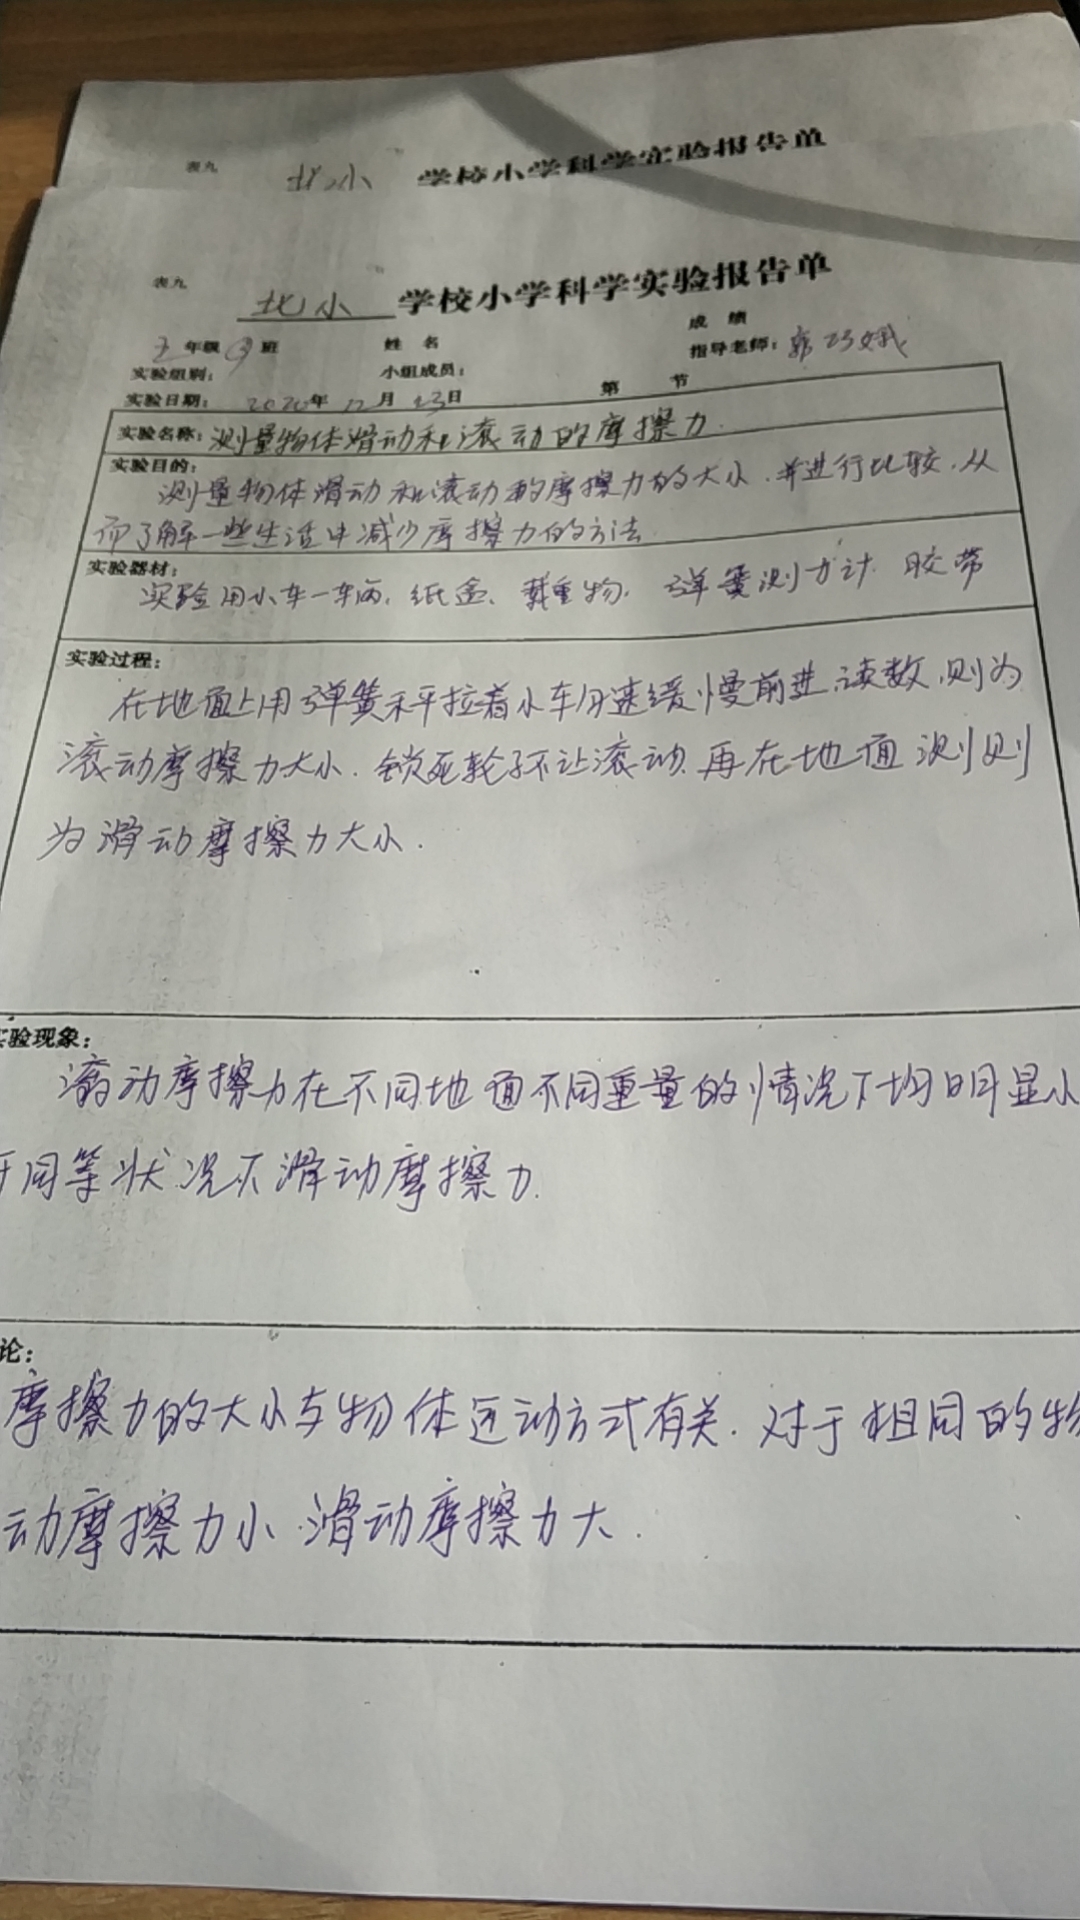 表九 北小 学校小学科学实验报告单
表九 北小 学校小学科学实验报告单
成 绩
年级 班 姓 名 指导老师：郭巧娥
实验组别： 小组成员：
实验日期： 2020年12月23日 第 节
实验名称：测量物体滑动和滚动的摩擦力.
实验目的：
测量物体滑动和滚动的摩擦力的大小.并进行比较.从
而了解一些生活中减少摩擦力的方法.
实验器材：
实验用小车一车辆.纸盒、载重物. 弹簧测力计 胶带
实验过程：
在地面上用弹簧水平拉着小车匀速缓慢前进.读数.则为
滚动摩擦力大小. 锁死轮子不让滚动.再在地面测则
为滑动摩擦力大小.
验现象：
滚动摩擦力在不同地面不同重量的情况下均明显小
于同等状况下滑动摩擦力.
论：
摩擦力的大小与物体运动方式有关.对于相同的物
动摩擦力小.滑动摩擦力大.